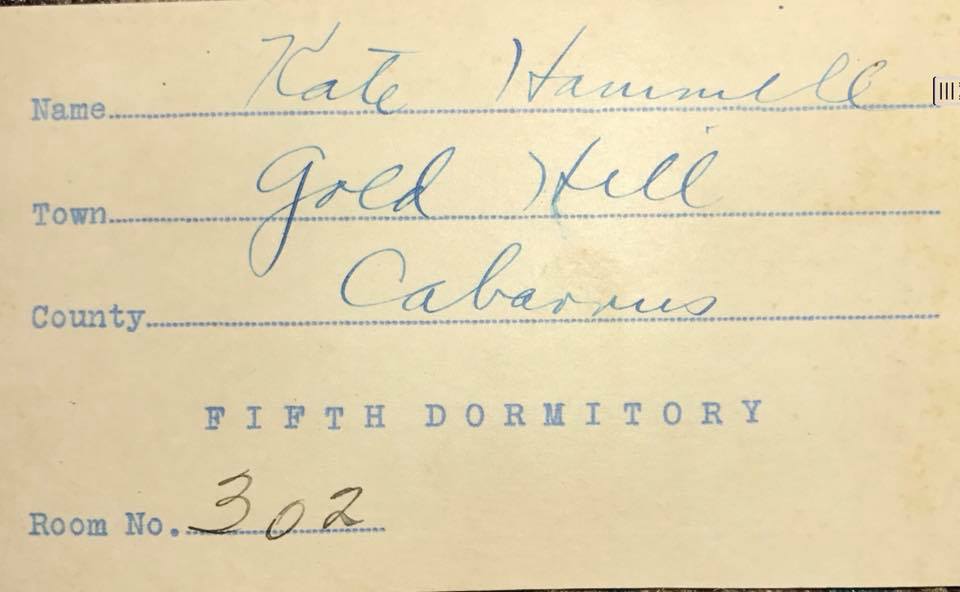 Name Kate Hammell
Town Gold Hill
County Cabarrus
FIFTH DORMITORY
Room No. 302